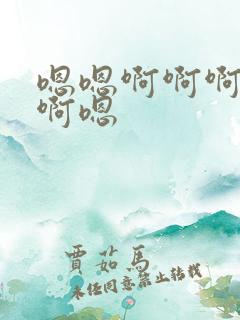 嗯嗯啊啊啊
啊嗯
賈茹馬
未经同意禁止转载